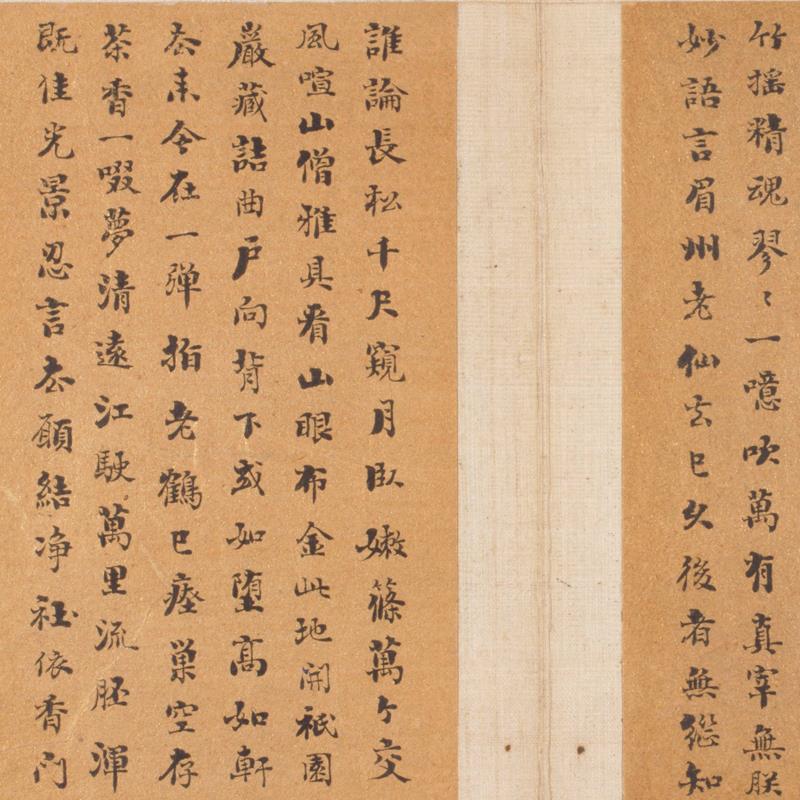 竹摇精魂翏〻一噫吹萬有真宰無朕
妙語言眉州老仙去已久後者無從知
誰論長松千尺窺月臥嫩篠萬个交
風喧山僧雅具看山眼布金此地開祇園
嚴藏詰曲戶向背下或如墮高如軒
去来今在一彈指老鶴已瘞巢空存
茶香一啜夢清遠江駛萬里流胚渾
既佳光景忍言去願結净社依香門